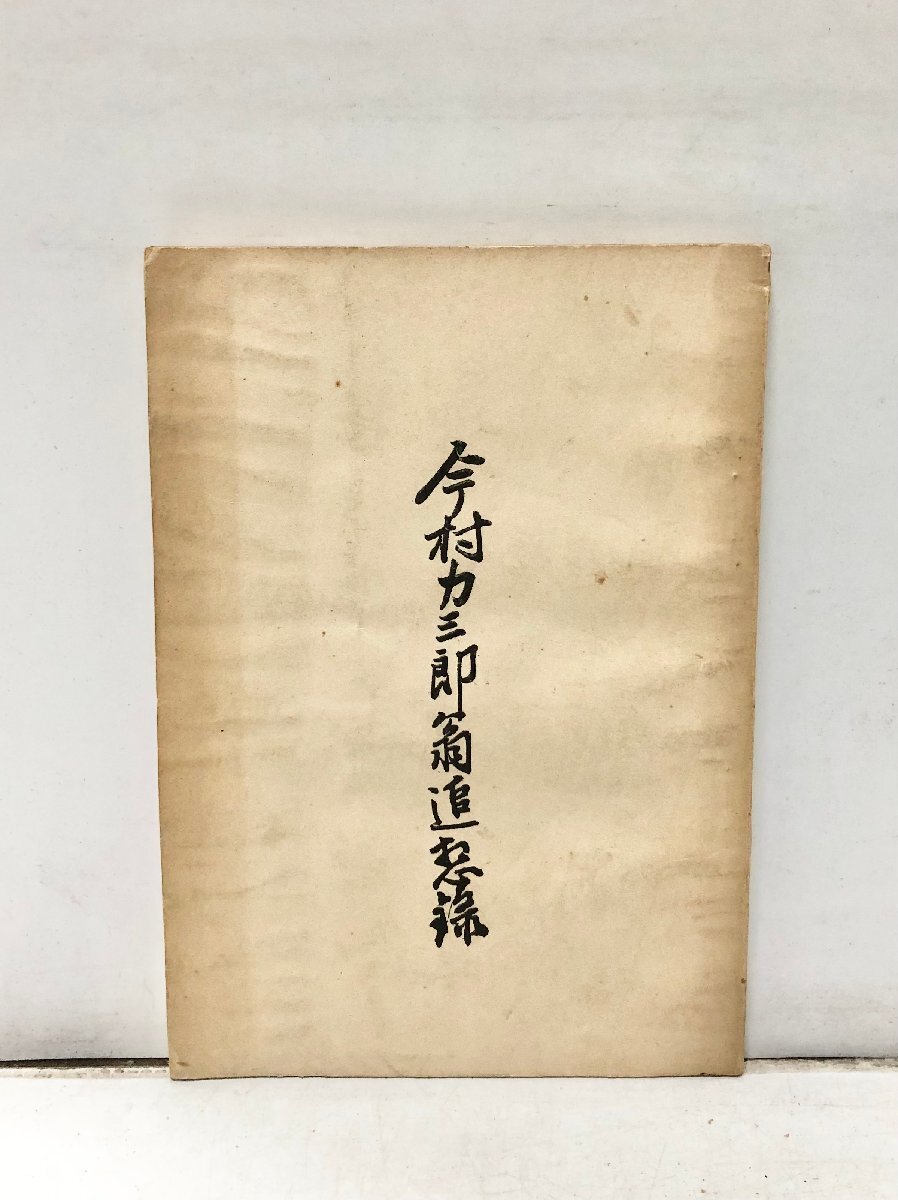 今村力三郎翁追想錄